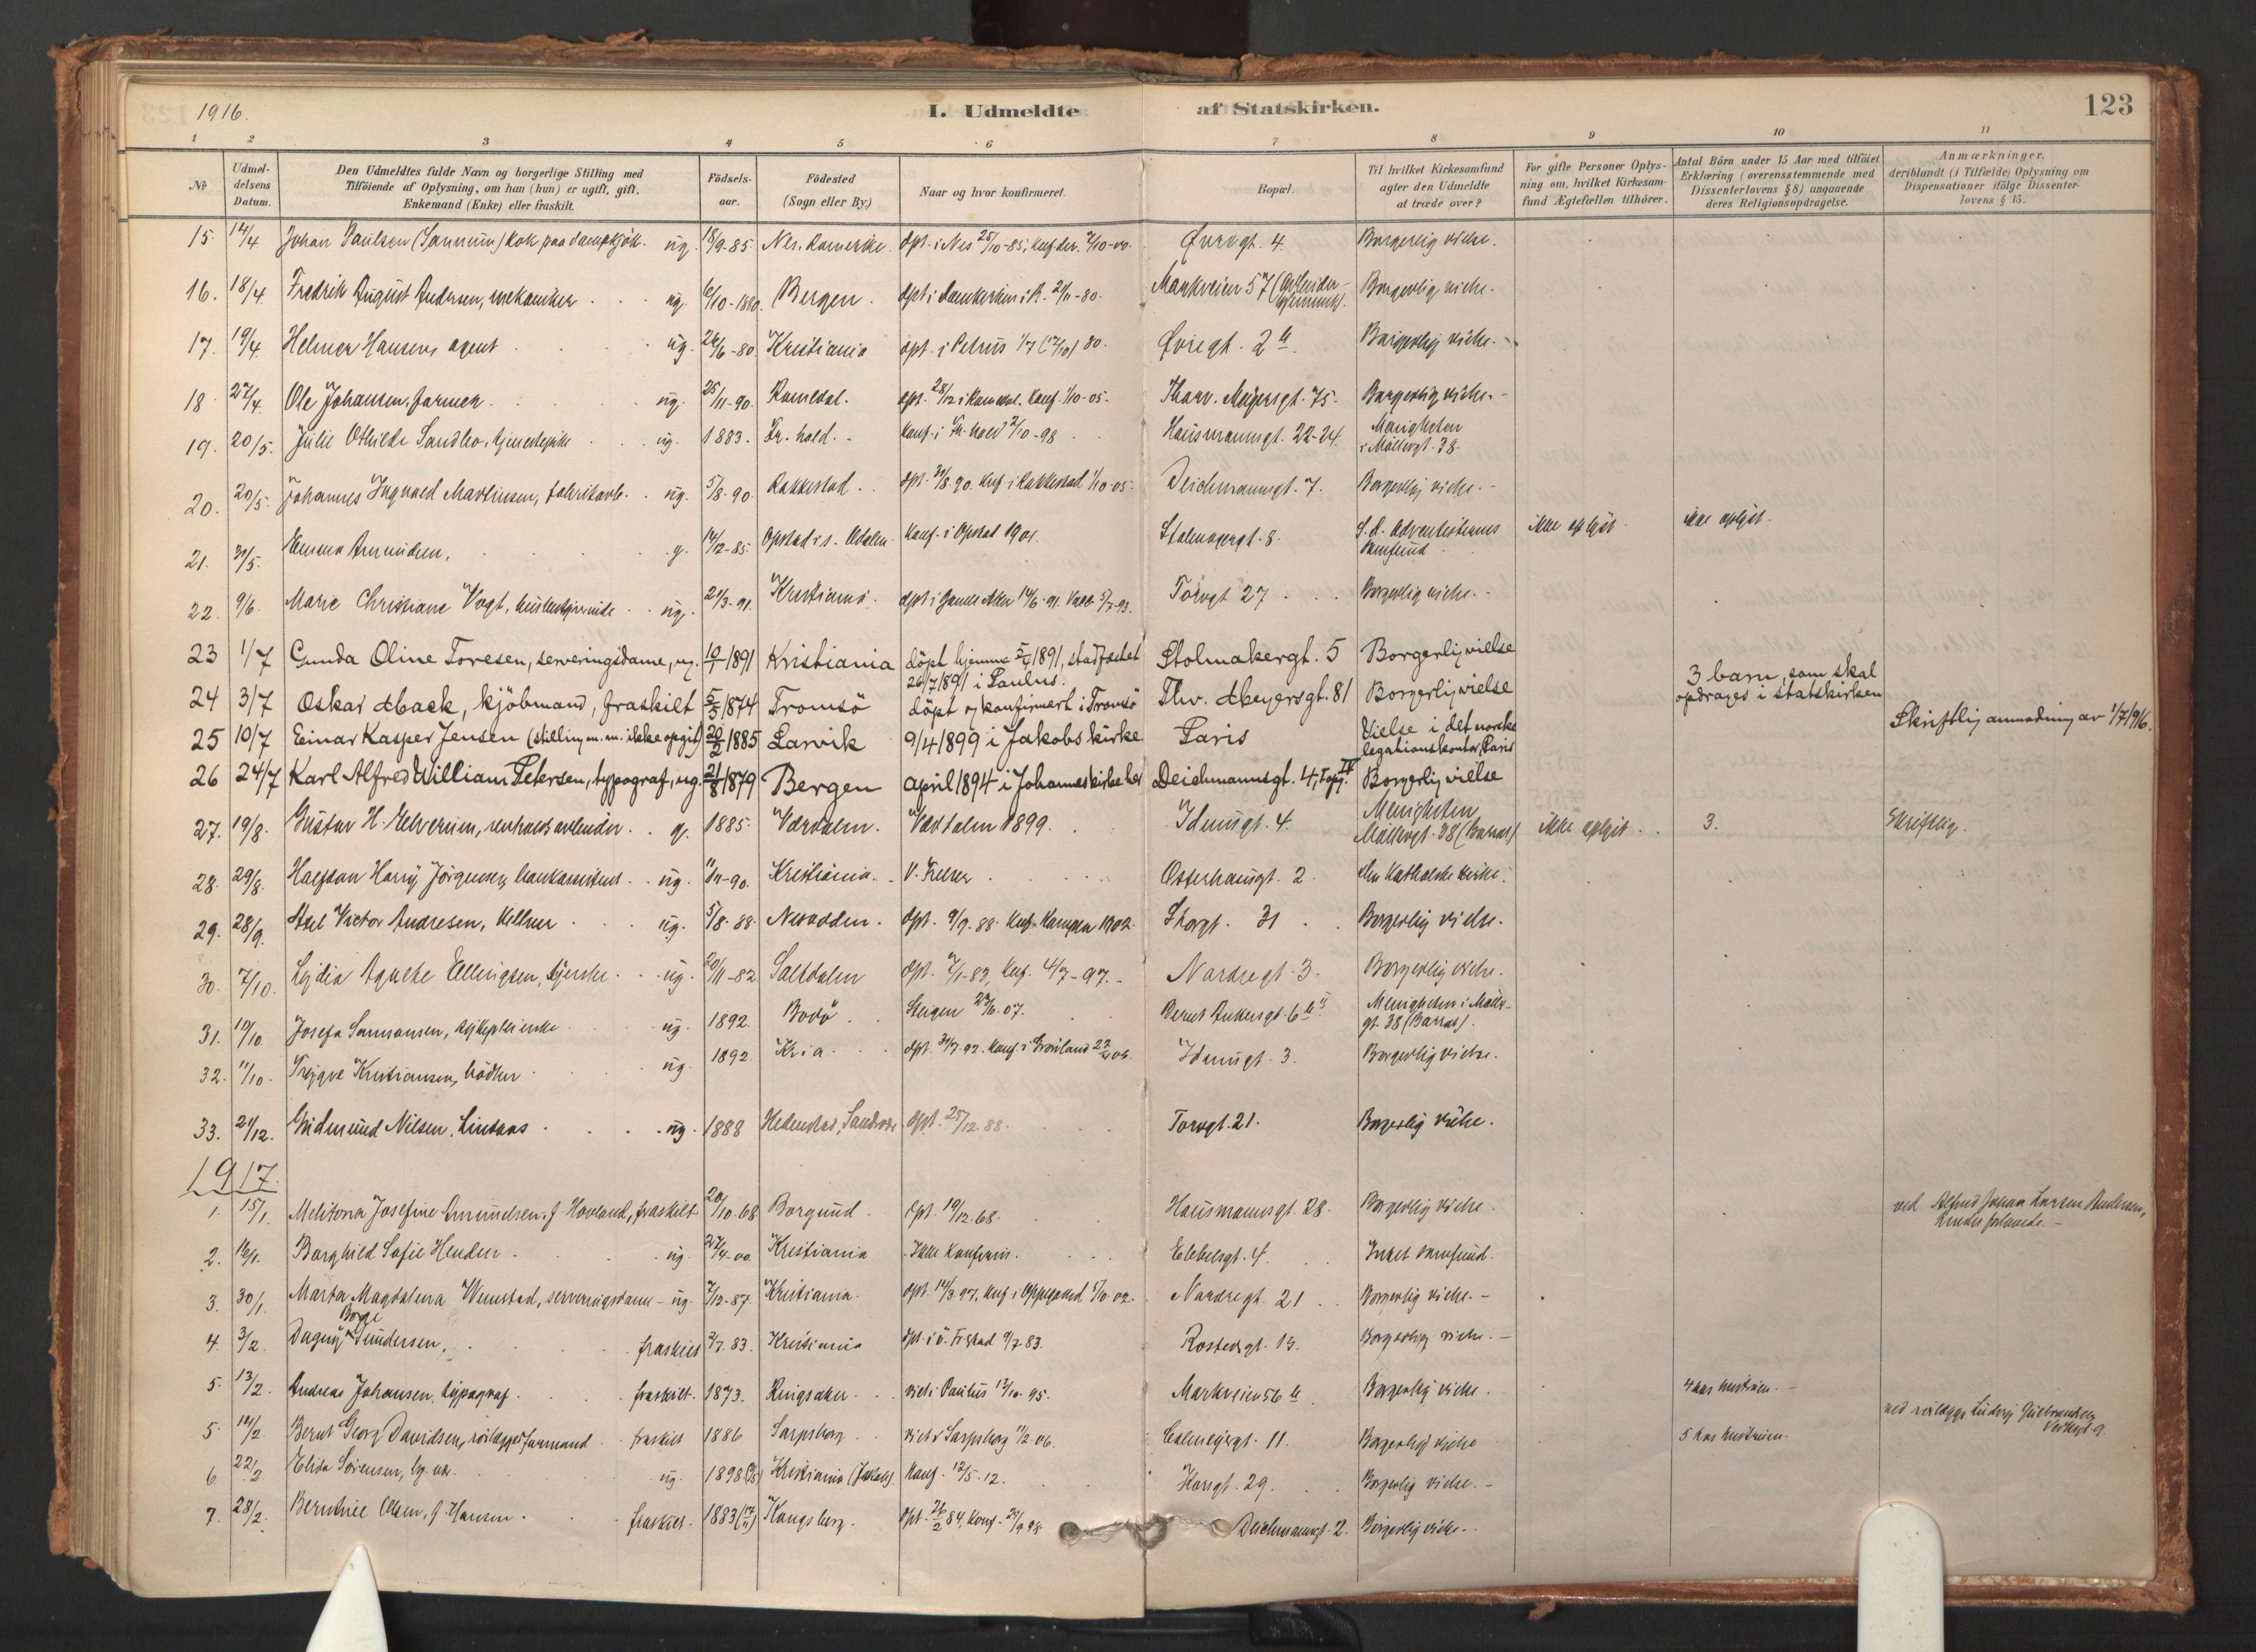 1916.
I. Udmeldte af Statskirken.
123
1 2 3 4 5 6 7 8 9 10 11
No
Udmeldelsens Datum.
Den Udmeldtes fulde Navn og borgerlige Stilling med
Tilföiende af Oplysning, om han (hun) er ugift, gift,
Enkemand (Enkr) eller fraskilt.
Födselsaar.
Födested
(Sogn eller By.)
Naar og hvor konfirmeret.
Bopæl.
Til hvilket Kirkesamfund
agter den Udmeldte
at træde over?
For gifte Personer Oplysning om, hvilket Kirkesamfund Ægtefællen tilhörer.
Antal Börn under 15 Aar med tilföiet
Erklæring (overensstemmende med
Dissenterlovens § 8) angaaende
deres Religionsopdragelse.
Anmærkninger,
deriblandt (i Tilfælde) Oplysning om
Dispensationer ifölge Dissenterlovens § 15.
15. 14/4 Johan Paulsen (Sannum) kok paa dampkjøk. ug. 18/9-85 Nes. Romerike Døpt i Nes 25/10-85, konf. der. Øvregt. 4. Borgerlig vielse.
16. 18/4 Fredrik August Andersen, mekaniker ug. 6/10-1880. Bergen. døpt i Domkirken i B. 21/11-80. Markveien 57 Borgerlig vielse.
17. 19/4 Helmer Hansen agent ug. 24/6-80. Kristiania døpt i Petrus 80. Øvregt. 2 Borgerlig vielse.
18 27/4 Ole Johansen, farmer. ug. 25/11-90. Romedal. døpt. 28/12 i Romedal. Konf. 1/10-05. Thorv. Meyersgt. 75. Borgerlig vielse.
19. 20/5. Julie Othilde Sandbo, tjenestepike ug. 1883. Fr. hald. Konf. i Fr. hald 2/10-98 Hausmannsgt. 22-24. Menigheten i Møllergt. 38.
20. 20/5. Johannes Ingvald Martinsen, fabrikarb. ug. 5/8-90 Rakkestad. døpt. 31/8.90. Konf. i Rakkestad 1/10-05. Deichmannsgt. 7. Borgerlig vielse.
21. 31/5. Emma Amundsen, g. 14/12-85. Opstad i s. Odalen Konf. i Opstad 1901. Stolmagergt. 8. S. d. Adventisternes Samfund ikke oplyst. ikke oplyst.
22. 9/6. Marie Christiane Vogt, ug. 21/3-91. Kristiania. døpt i Gamle Aker 14/6-91. Torvgt 27 Borgerlig vielse.
23 1/7 Gunda Oline Toresen, serveringsdame, ug. 1891 Kristiania döpt hjemme 1891, stadfæstet 26/7 1891 i Paulus. Stolmakergt. 5 Borgerlig vielse
24 3/7 Oskar Mack, kjöbmand, fraskilt 5/3 1874 Tromsö döpt og konfirmert i Tromsö Thv. Meyersgt. 81 Borgerlig vielse 3 barn, som skal opdrages i statskirken
25 10/7 Einar Kasper Jensen (stilling m.m. ikke opgit) 20/2 1885 Larvik 9/4 1899 i Jakobs kirke Paris Vielse i det norske legationskontor, Paris Skriftlig anmodning av 1/7 1916.
26 24/7 Karl Alfred William Petersen, typograf, ug. 21/8 1879 Bergen april 1894 i Johanneskirke her Deichmannsgt. 4, Opg. IV Borgerlig vielse
27. 19/8. Gustav H. Elverum, g. 1885. Værdalen. Værdalen 1899. Idunsgt. 4. Menigheten Møllergt. 38 (Barrat) ikke oplyst. 3. Skriftlig.
28. 29/8. Halfdan Harry Jørgensen, bankassistent ug. Kristiania. V. Frelser Osterhausgt. 2 den Katholske kirke.
29. 28/9. Axel Victor Andresen, Kellner ug. 5/8-88. Nesodden. døpt. 9/9.88. Konf. Kampen 1902. Storgt. 31 Borgerlig vielse.
30. 7/10. Lydia Agathe Ellingsen, syerske ug. 20/11-82 Saltdalen døpt. 7/1-83, Konf. 4/7-97. Nordregt. 3. Borgerlig vielse.
31. 10/10. Josefa Samsonsen, sykepleierske ug. 1892. Bodø Steigen 24/6.07. Bernt Ankersgt. 6 Menigheten i Møllergt. 38 (Barrat).
32. 11/10. Trygve Kristiansen, bødker ug. 1892. Kria. døpt. 31/7-92. Konf. i Grønland Idunsgt. 3. Borgerlig vielse.
33. 21/12. Gudmund Nilsen Lindaas ug. 1888 Hedenstad, Sandsvær døpt. 25/12.88. Torvgt. 21. Borgerlig vielse.
1917.
1. 15/1. Melitona Josefine Amundsen f. Hovland, fraskilt 20/10.68 Borgund. døpt. 19/12-68. Hausmannsgt. 28. Borgerlig vielse. ved Alfred Johan Larsen Andersen, hendes forlovede.
2. 16/1. Borghild Sofie Henden ug. 27/4-00. Kristiania Ikke konfirm. Eddelsgt. 4. Intet samfund.
3. 30/1. Marta Magdalena Wenstad, serveringsdame ug. 7/12-87. Kristiania. Døpt. Nordregt. 21 Borgerlig vielse.
4. 3/2. Dagny Borge Gundersen, fraskilt 2/7.83. Kristiania døpt i Fr.stad 9/7-83. Rostedsgt. 13. Borgerlig vielse.
5. 13/2. Andreas Johansen, typograf. fraskilt. 1873. Ringsaker. viet i Paulus 12/10.95. Markveien 56 Borgerlig vielse. 4 hos hustruen.
5. 14/2. Bernt Georg Davidsen, rørlægger formand fraskilt 1886 Sarpsborg viet i Sarpsborg 1/2-06. Calmeyergt. 11. Borgerlig vielse 5 hos hustruen. ved rørlægger Ludvig Gulbrandsen,
6. 22/2. Elida Sørensen, ug. 1898 Kristiania (Jakob). Konf. 12/5-12. Torvgt. 29. Borgerlig vielse.
7. 28/2. Berntine Olsen, f. Hansen fraskilt. 1883 Kongsberg. Døpt. 26/2 84, konf. Deichmannsgt. 2. Borgerlig vielse.